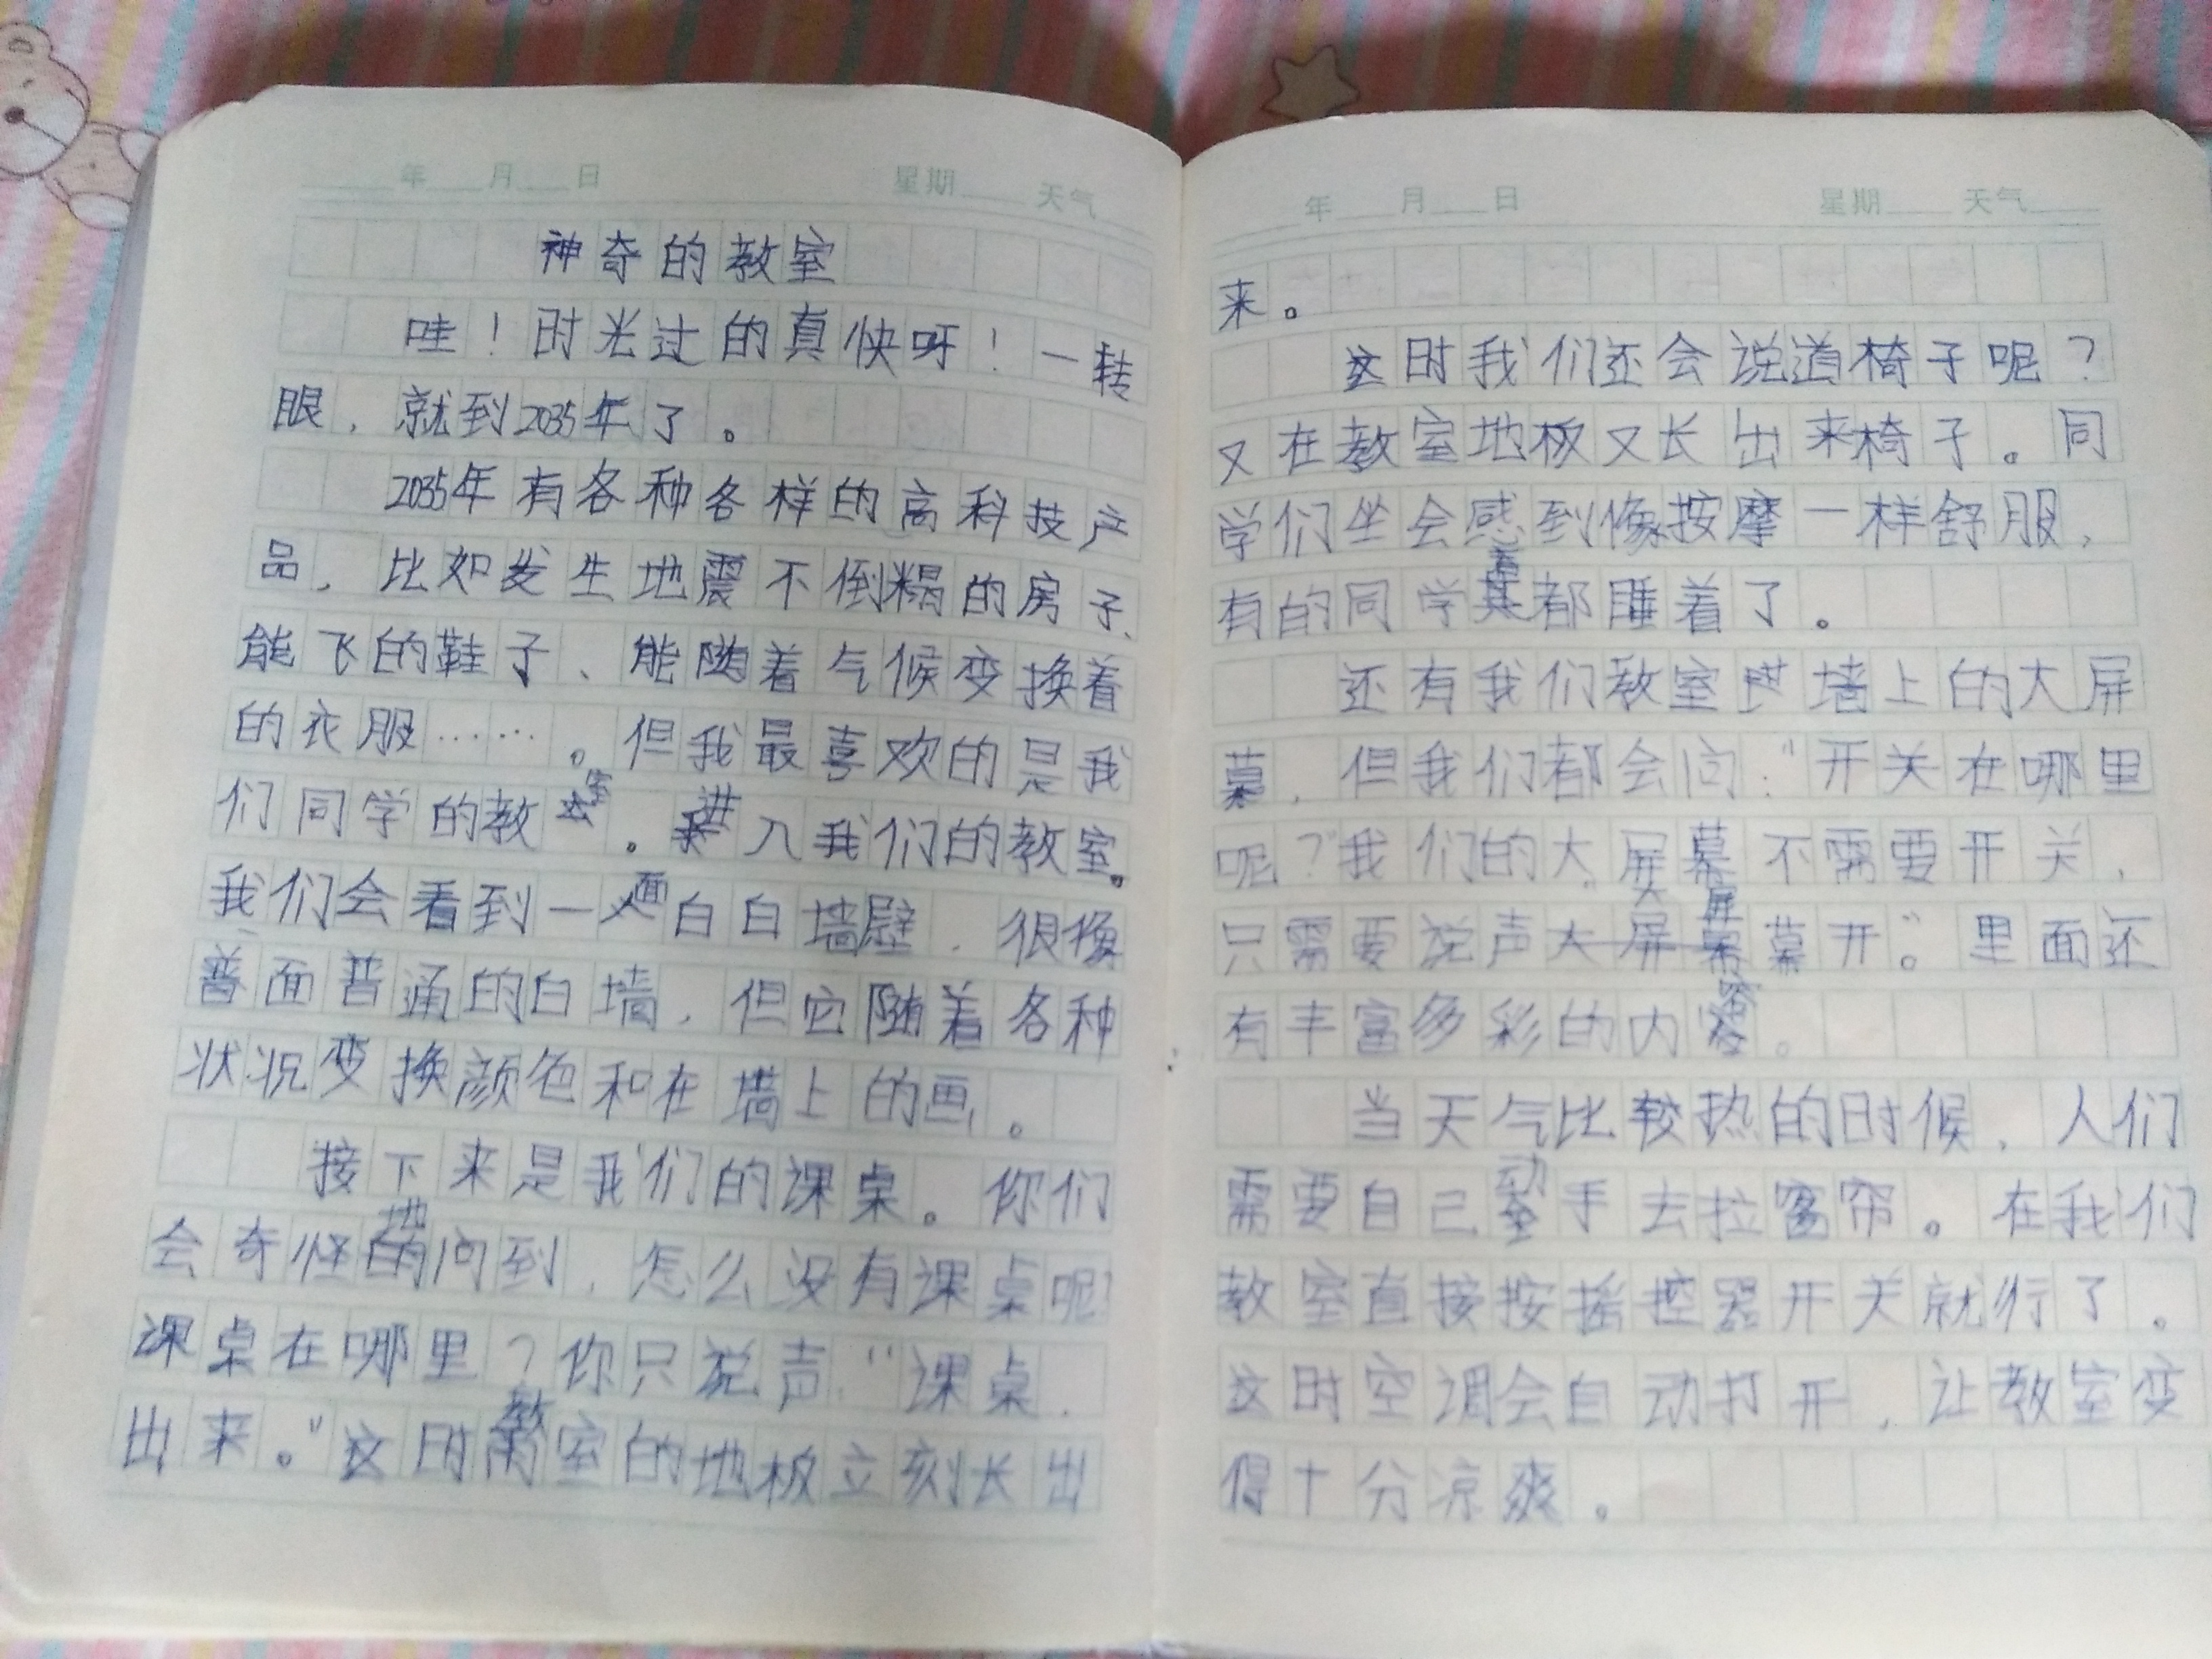 年 月 日 星期 天气
神奇的教室
哇！时光过的真快呀！一转
眼，就到2035年了。
2035年有各种各样的高科技产
品，比如发生地震不倒塌的房子、
能飞的鞋子、能随着气候变换着
的衣服……。但我最喜欢的是我
们同学的教室。进入我们的教室。
我们会看到一面白白墙壁，很像
普面普通的白墙，但它随着各种
状况变换颜色和在墙上的画。
接下来是我们的课桌。你们
会奇怪地问到，怎么没有课桌呢？
课桌在哪里？你只说声“课桌，
出来。”这时教室的地板立刻长出
年 月 日 星期 天气
来。
这时我们还会说道椅子呢？
又在教室地板又长出来椅子。同
学们坐会感到像按摩一样舒服，
有的同学着都睡着了。
还有我们教室墙上的大屏
幕，但我们都会问：“开关在哪里
呢？”我们的大屏幕不需要开关，
只需要说声“大屏幕开”。里面还
有丰富多彩的内容。
当天气比较热的时候，人们
需要自己动手去拉窗帘。在我们
教室直接按摇控器开关就行了。
这时空调会自动打开，让教室变
得十分凉爽。